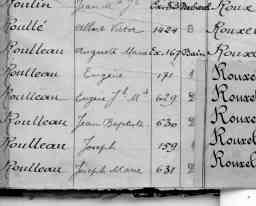 Roulin Jean Roux
Roullé Albert Victor 1424 B Rouxel
Roulleau Auguste Marie Ex. 167 Bain Rouxel
Roulleau Eugène 171 1 Rouxel
Roulleau Eugène Jh Me 629 2 Rouxel
Roulleau Jean Baptiste 630 2 Rouxel
Roulleau Joseph 159 1 Rouxel
Roulleau Joseph Marie 631 2 Rouxel